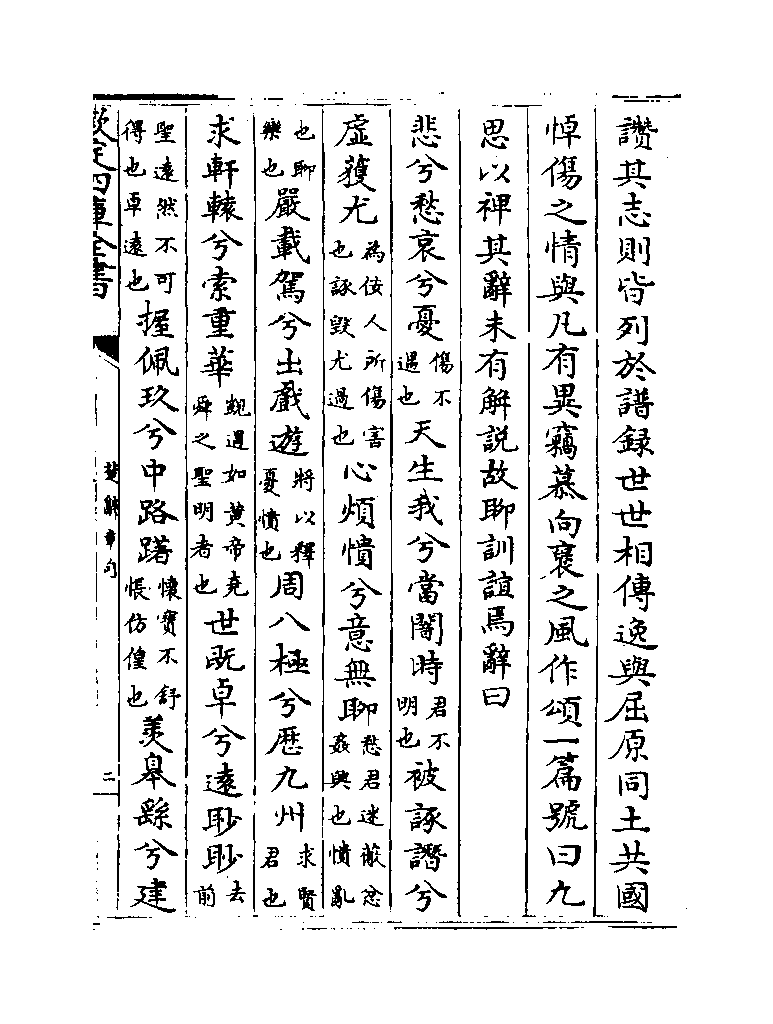 讚其志則皆列於譜録世世相傳逸與屈原同土共國
悼傷之情與凡有異竊慕向襃之風作頌一篇號曰九
思以禆其辭未有解説故聊訓誼焉辭曰
悲兮愁哀兮憂傷不遇也天生我兮當闇時君不明也被諑譖兮
虚獲尤為佞人所傷害也諑毁尤過也心煩憒兮意無聊愁君迷蔽忿姦興也憒亂
也聊樂也嚴載駕兮出戲遊將以釋憂憤也周八極兮厯九州求賢君也
求軒轅兮索重華覬遇如黄帝堯舜之聖明者也世既卓兮逺眇眇去前
聖遠然不可得也卓遠也握佩玖兮中路躇懐寶不舒悵仿偟也羡臯繇兮建
欽定四庫全書
楚辭章句
二